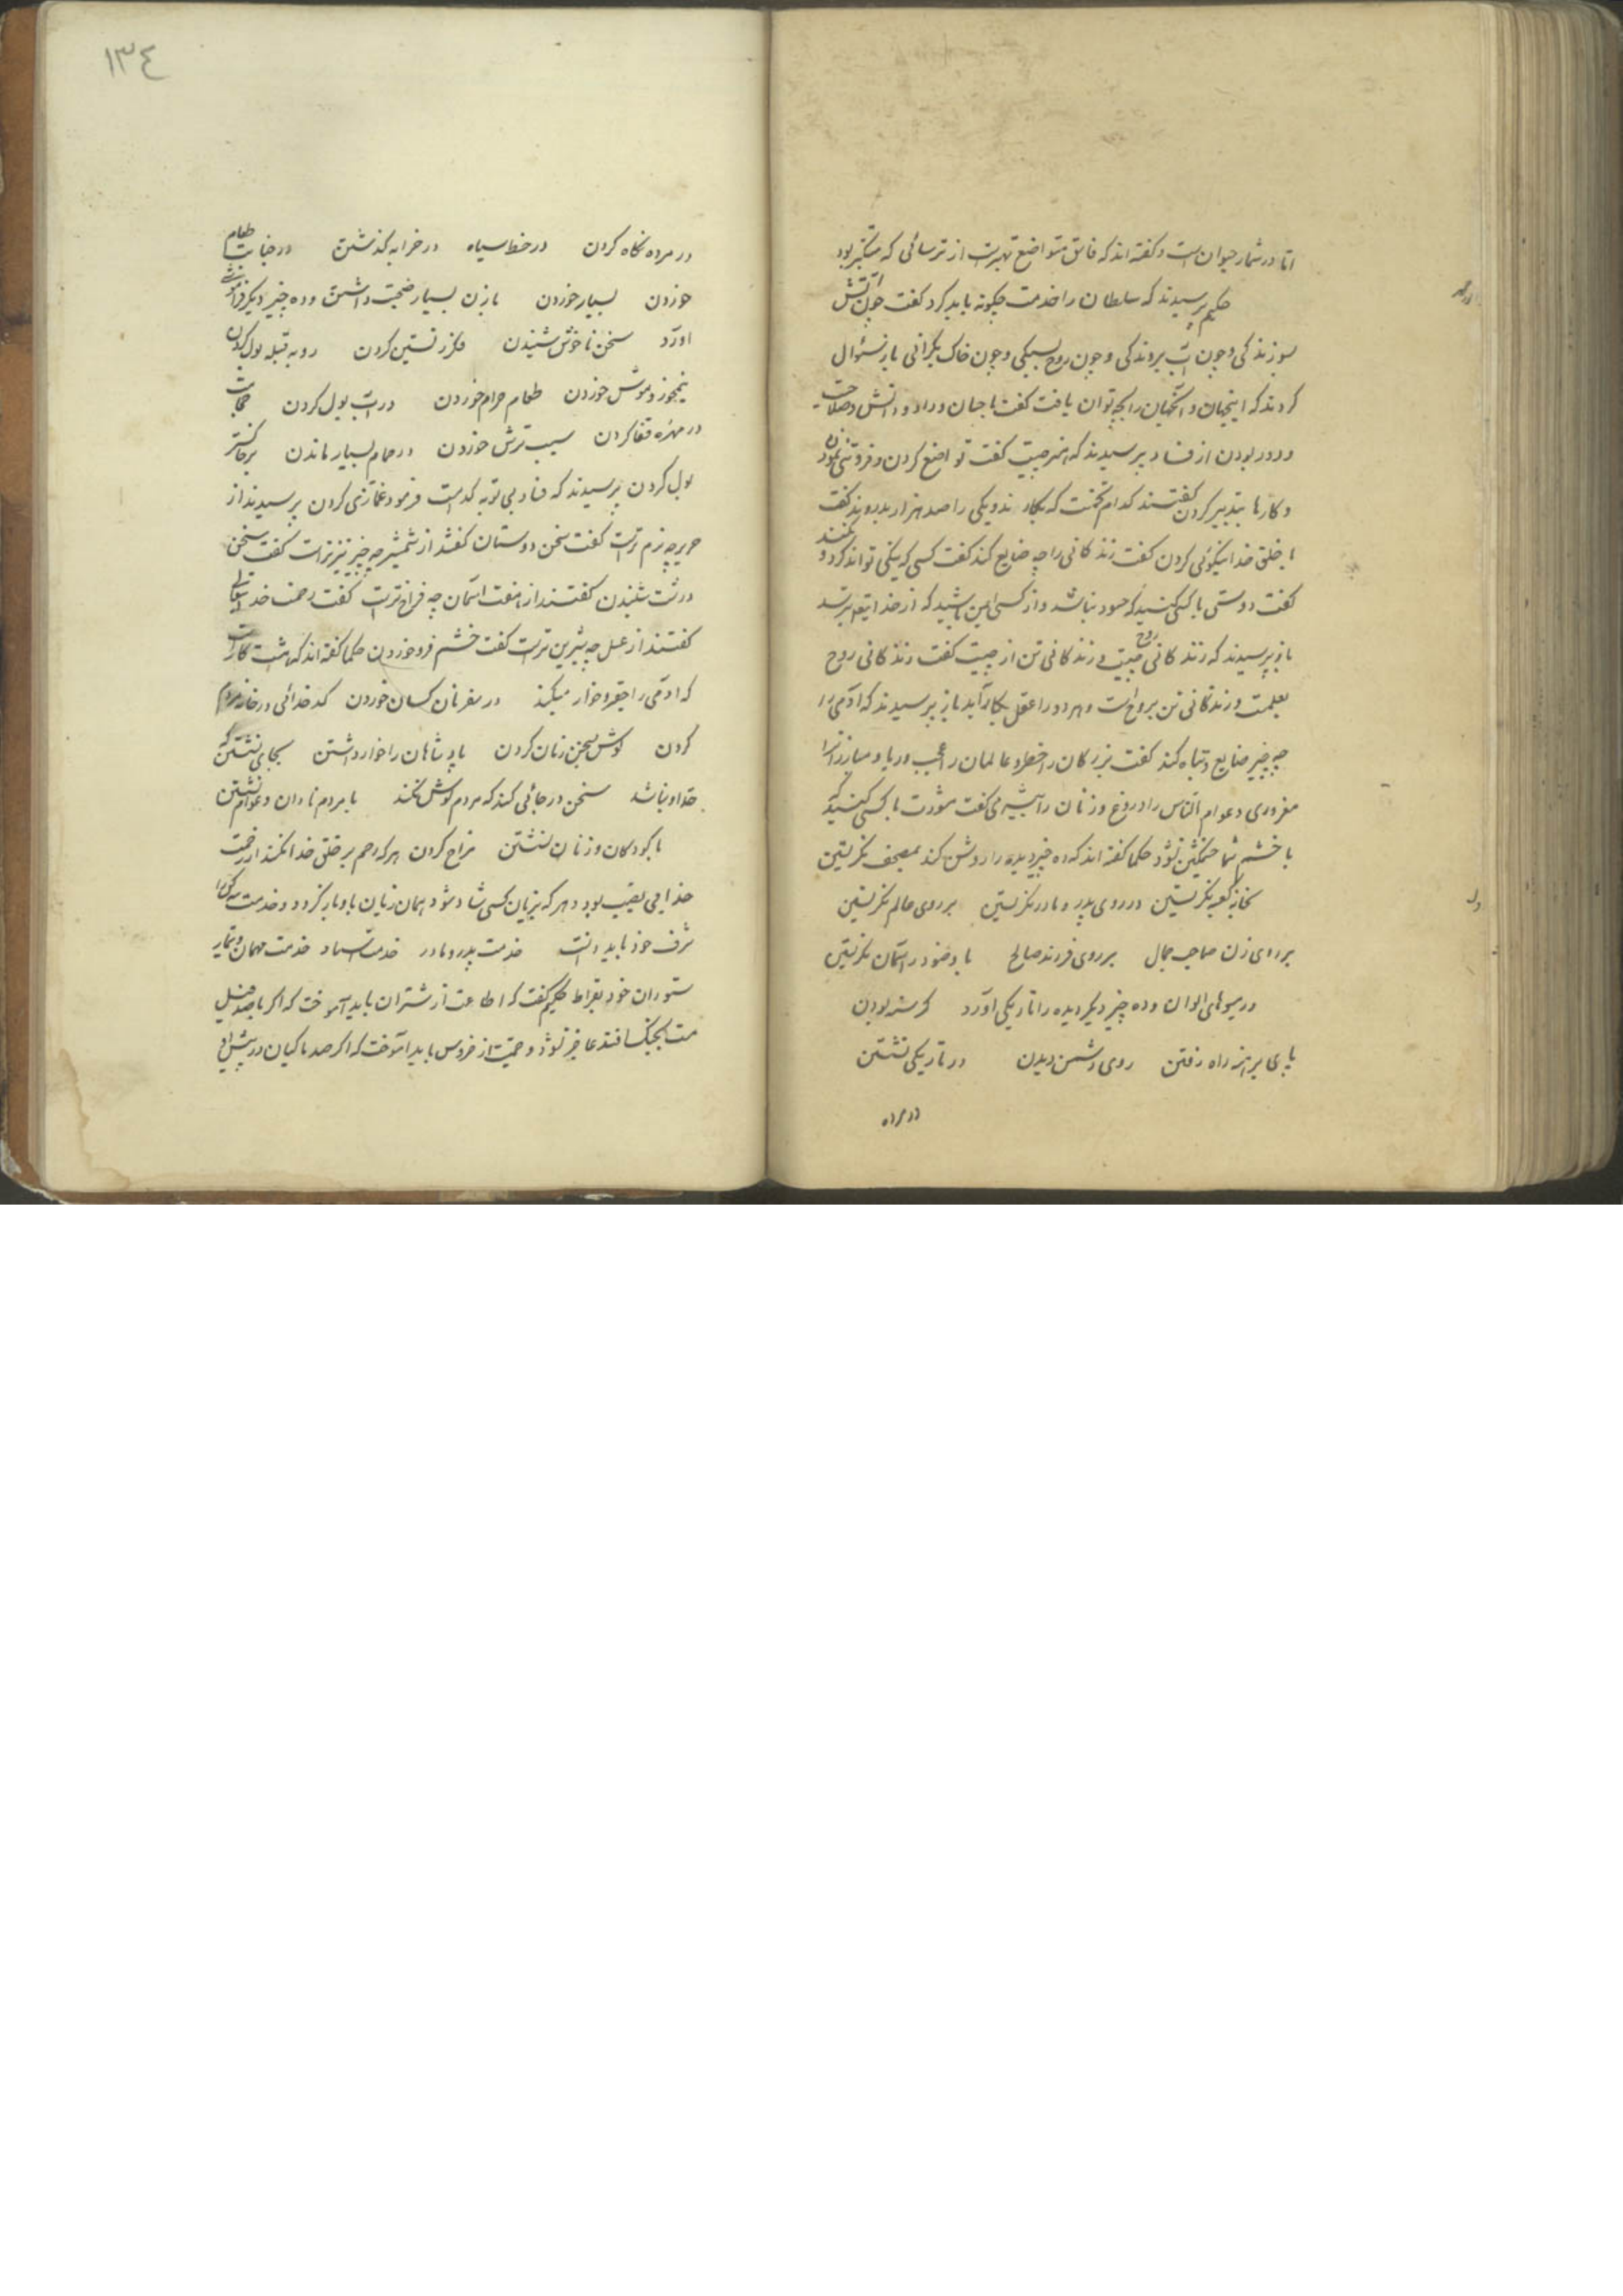 اما در شمار حیوان است و گفته اند که فاسق متواضع بهتر است از ترسائی که متکبر بود
حکیم پرسیدند که سلطان را خدمت چگونه باید کرد گفت چون آتش
سوزندگی و چون آب بروندگی و چون روح بسبکی و چون خاک بگرانی باز سئوال
کردند که اینجهان و آنجهان را بچه توان یافت گفت با جهان و داد و دانش و صلاحیت
و دور بودن از فساد پرسیدند که هنر چیست گفت تواضع کردن و فروتنی نمودن
و کارها بتدبیر کردن گفتند کدام تخمست که یکبار ندویکی را صد هزار بدروند گفت
با خلق خدا نیکوئی کردن گفت زندگانی را چه ضایع کند گفت کسی که نیکی تواند کرد و نکند
گفت دوستی با کسی کنید که حسود نباشد و از کسی ایمن باشید که از خدایتعالی ترسد
باز پرسیدند که زندگانی روح چیست و زندگانی تن از چیست گفت زندگانی روح
بعلمست و زندگانی تن بروح است و هر دو را عقل بکار آید باز پرسیدند که آدمی را
چه چیز ضایع و تباه کند گفت بزرگان را خطر و عالمان را عجب و ریا و مبارزانرا
مغروری و عوام الناس را دروغ و زنان را بیشرمی گفت مشورت با کسی کنید که
با خشم شما خشمگین نشود حکما گفته اند که ده چیز دیده را روشن کند بمصحف نگریستن
بخانه کعبه نگریستن در روی پدر و مادر نگریستن بر روی عالم نگریستن
بر روی زن صاحب جمال بر روی فرزند صالح با وضو در آسمان نگریستن
در میوهای الوان و ده چیز دیگر دیده را تاریکی آورد گرسنه بودن
پای برهنه راه رفتن روی دشمن دیدن در تاریکی نشستن
در مرده
١٣٤
در مرده نگاه کردن در خط سیاه در خرابه گذشتن در جنابت طعام
خوردن بسیار خوردن با زن بسیار صحبت داشتن و ده چیز دیگر فراموشی
آورد سخن ناخوش شنیدن فکر زنستین کردن رو به قبله بول کردن
نیمخورد موش خوردن طعام حرام خوردن در آب بول کردن حجامت
در مهره قفا کردن سیب ترش خوردن در حمام بسیار ماندن بر خاکستر
بول کردن پرسیدند که فساد بی توبه کدامست فرمود غمازی کردن پرسیدند از
حریر چه نرم تر است گفت سخن دوستان گفتند از شمشیر چه چیز تیزتر است گفت سخن
درشت شنیدن گفتند از هفت آسمان چه فراختر است گفت رحمت خدایتعالی
گفتند از عسل چه شیرین تر است گفت خشم فرو خوردن حکما گفته اند که هشت کار است
که آدمی را حقیر و خوار میکند در سفر نان کسان خوردن کدخدائی در خانه مردم
کردن گوش بسخن زنان کردن پادشاهان را خوار داشتن بجای نشستن که
حد او نباشد سخن در جائی کند که مردم گوش نکنند با مردم نادان و عوام نشستن
با کودکان و زنان نشستن مزاح کردن هر که رحم بر خلق خدا نکند از رحمت
خدا بی نصیب بود و هر که بزیان کسی شاد شود همان زیان باو باز گردد و خدمت
شرف خود باید دانست خدمت پدر و مادر خدمت استاد خدمت مهمان و تیمار
ستوران خود بقراط حکیم گفت که اطاعت از شتران باید آموخت که اگر با صد فیل
مست بجنگ افتد عاجز نشود و حمیت از خروس باید آموخت که اگر صد ماکیان در پیش او